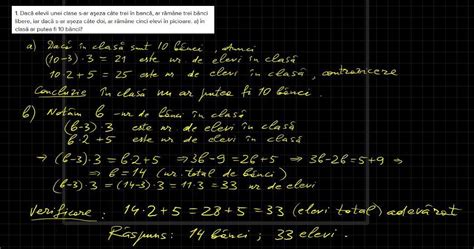 1. Dacă elevii unei clase s-ar așeza câte trei în bancă, ar rămâne trei bănci
libere, iar dacă s-ar așeza câte doi, ar rămâne cinci elevi în picioare. a) în
clasă ar putea fi 10 bănci?
a) Dacă în clasă sunt 10 bănci, atunci
(10-3)·3 = 21 este nr. de elevi în clasă
10·2+5 = 25 este nr. de elevi în clasă, contrazicere
Concluzie în clasă nu ar putea fi 10 bănci.
b) Notăm b - nr. de bănci în clasă
(b-3)·3 este nr. de elevi în clasă
b·2+5 este nr. de elevi în clasă
⇒ (b-3)·3 = b·2+5 ⇒ 3b-9 = 2b+5 ⇒ 3b-2b = 5+9 ⇒
⇒ b = 14 (nr. total de bănci)
(b-3)·3 = (14-3)·3 = 11·3 = 33 nr. de elevi
Verificare: 14·2+5 = 28+5 = 33 (elevi total) adevărat
Răspuns: 14 bănci; 33 elevi.